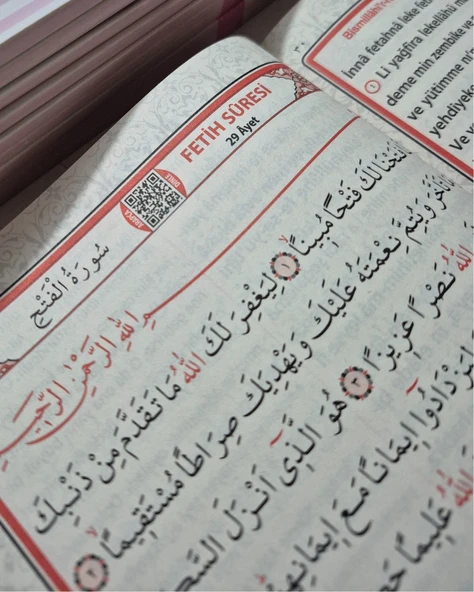 FETİH SÛRESİ
29 Âyet
سُورَةُ الْفَتْحِ
DİNLE
اللّٰهِ الرَّحْمٰنِ الرَّحِيمِ
لَكَ فَتْحًا مُبِينًا ﴿١﴾ لِيَغْفِرَ لَكَ اللّٰهُ مَا تَقَدَّمَ مِنْ ذَنْبِكَ
وَيُتِمَّ نِعْمَتَهُ عَلَيْكَ وَيَهْدِيَكَ صِرَاطًا مُسْتَقِيمًا ﴿٢﴾
اللّٰهُ نَصْرًا عَزِيزًا ﴿٣﴾ هُوَ الَّذِٓى اَنْزَلَ
دَادُٓوا اِيمَانًا مَعَ اِيمَانِهِ
اللّٰهُ عَلِيمًا
Bismillâhi'r-
İnnâ fetahnâ leke fet
① Li yağfira lekellâhü m
deme min zembike ve
ve yütimme ni
yehdiyeke
Ve